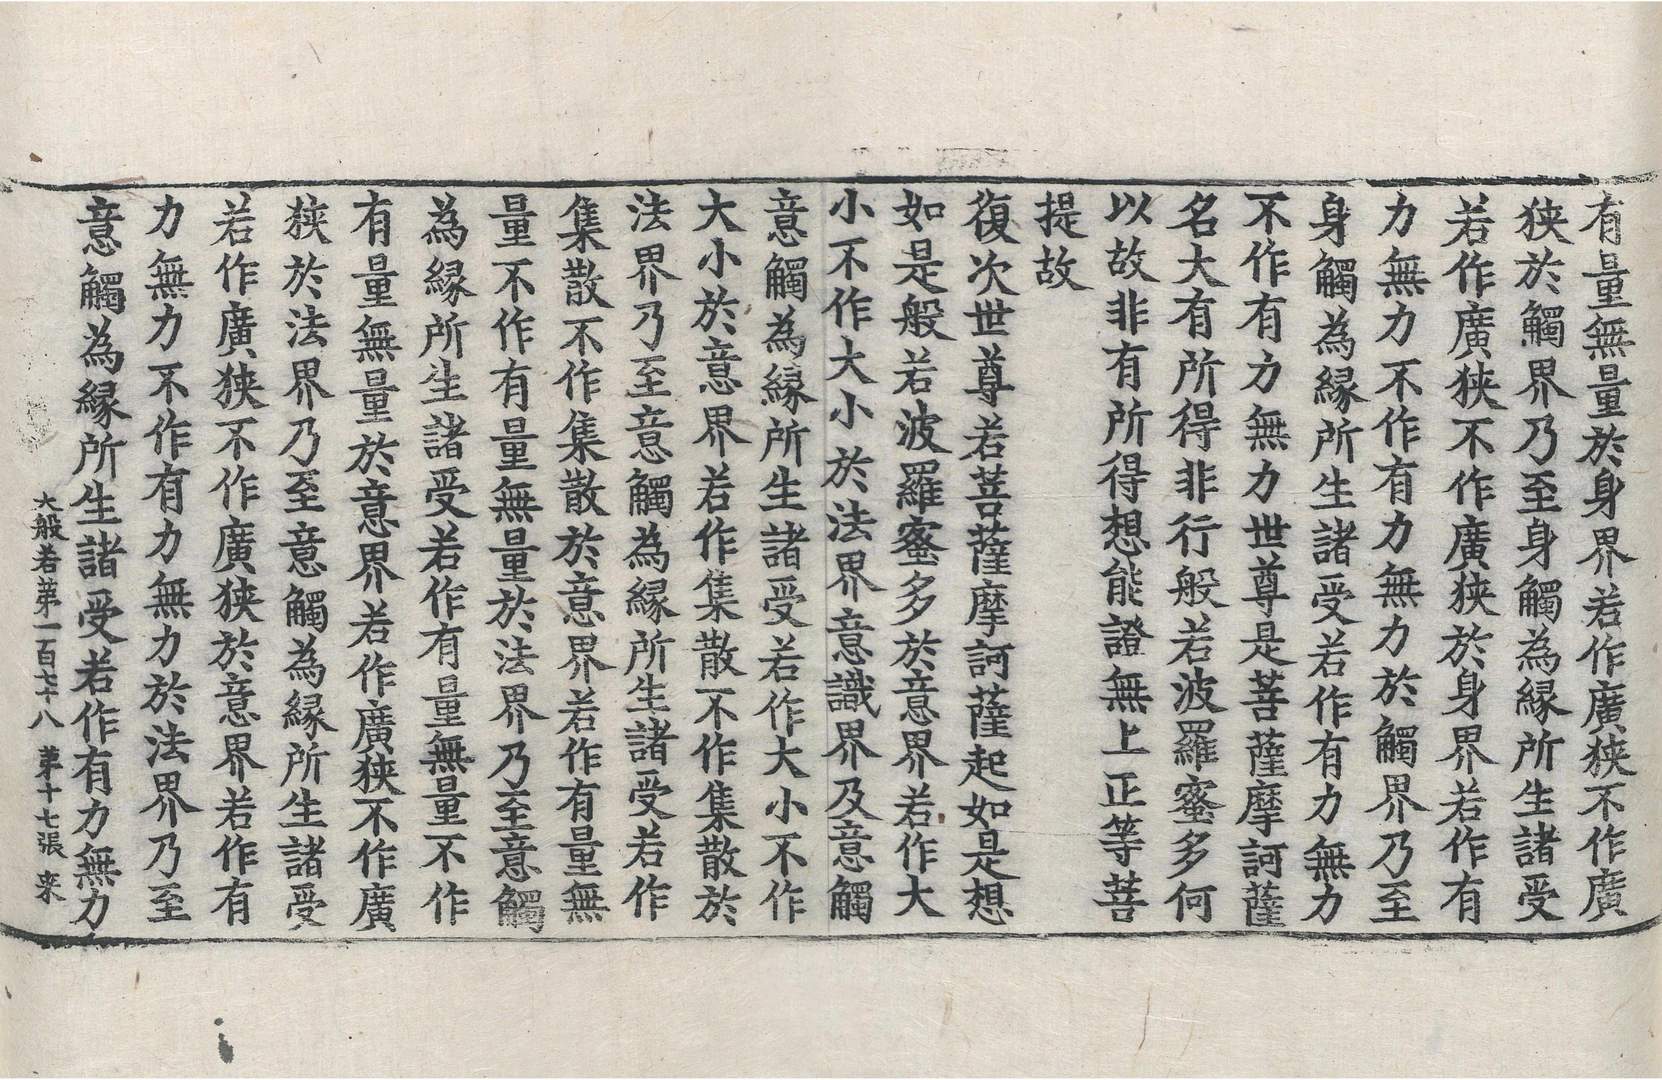 有量無量於身界若作廣狹不作廣
狹於觸界乃至身觸為緣所生諸受
若作廣狹不作廣狹於身界若作有
力無力不作有力無力於觸界乃至
身觸為緣所生諸受若作有力無力
不作有力無力世尊是菩薩摩訶薩
名大有所得非行般若波羅蜜多何
以故非有所得想能證無上正等菩
提故
復次世尊若菩薩摩訶薩起如是想
如是般若波羅蜜多於意界若作大
小不作大小於法界意識界及意觸
意觸為緣所生諸受若作大小不作
大小於意界若作集散不作集散於
法界乃至意觸為緣所生諸受若作
集散不作集散於意界若作有量無
量不作有量無量於法界乃至意觸
為緣所生諸受若作有量無量不作
有量無量於意界若作廣狹不作廣
狹於法界乃至意觸為緣所生諸受
若作廣狹不作廣狹於意界若作有
力無力不作有力無力於法界乃至
意觸為緣所生諸受若作有力無力
大般若第一百七十八 第十七張 來